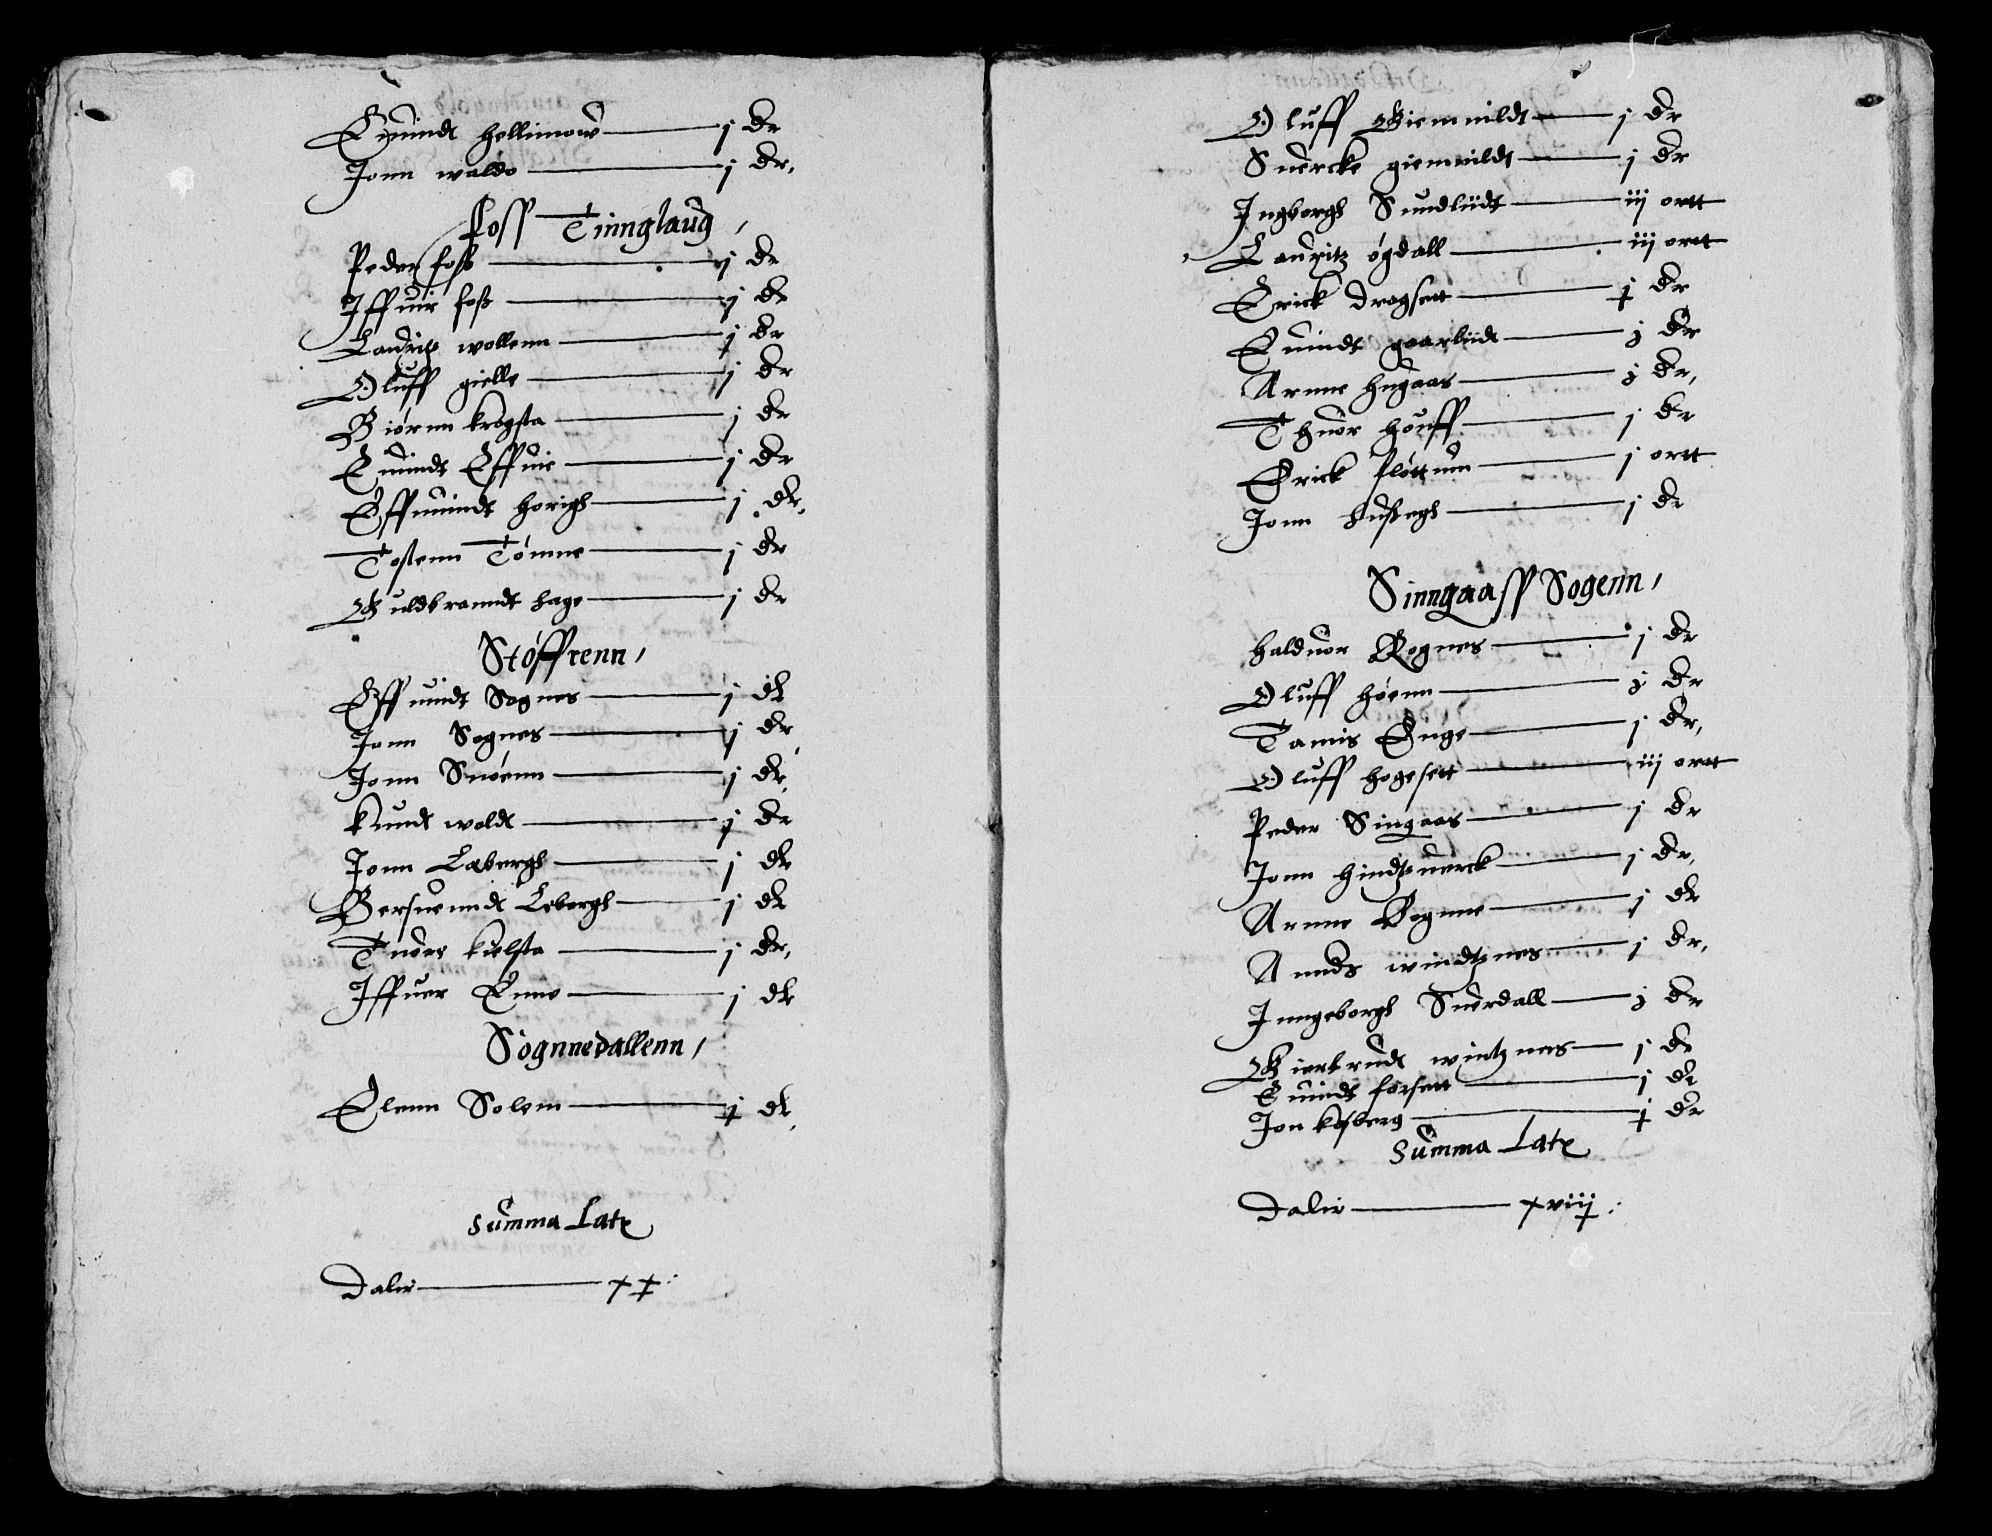 Euindt hellimow j dr
Jonn waldo j dr,
Foss Tinnglaug,
Peder foss j dr
Iffuir foss j dr
Lauritz wollenn j dr
Oluff gielle j dr
Biörnn krogsta j dr
Euindt Effuie j dr
Effuindt horigh j dr,
Tostenn Tömme j dr
Guldbranndt hage j dr
Stöffrenn,
Effuindt Sognes j dr
Jonn Sognes j dr
Jonn Snöenn j dr,
knudt woldt j dr
Jonn Labergh j dr
Bersuenndt Lebergh j dr
Tuore kielsta j dr,
Iffuer Enno j dr
Sognnedallenn,
Elenn Solem j dr,
Summa Late
Daler xx
Oluff Giemnildt j dr
Suercke giemnildt j dr
Ingborgh Sundliidt iij ortt
Lauritz ögdall iij ortt
Erick dragsett j dr
Euindt gaarliidt j dr
Arnne hugaas j dr,
Thuor houff j dr
Erick flöttum j ortt
Jonn j dr
Sinngaass Sogenn,
halduor Rognes j dr
Oluff höenn j dr
Tamis Enge j dr,
Oluff hogesett iij ortt
Peder Singaas j dr
Jonn hindtzuerck j dr,
Arnne Rognne j dr
Annds windtznes j dr,
Inngeborgh Suerdall j dr
Giertrudt wintznes j dr
Euindt forsett j dr
Jon kosberg j dr
Summa Late
Daler xviij